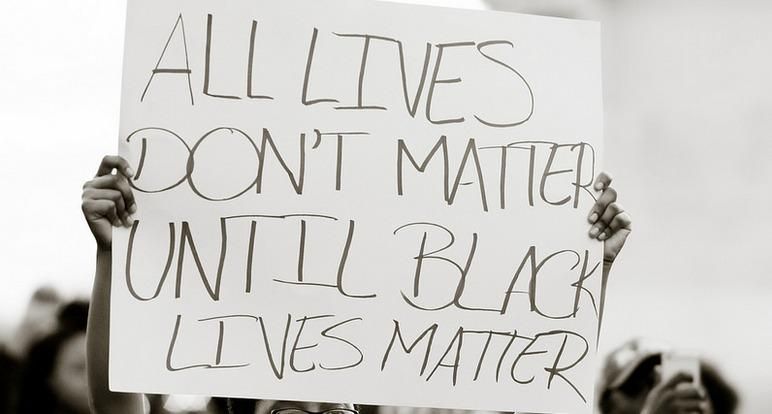 ALL LIVES
DON'T MATTER
UNTIL BLACK
LIVES MATTER